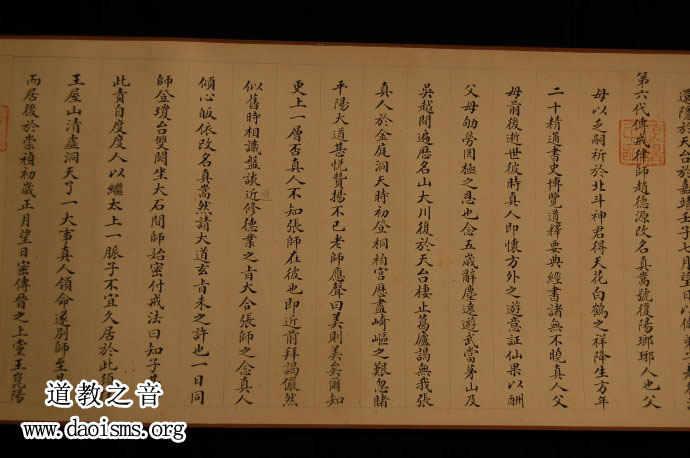 還隱於天台於嘉靖壬子七月望日以傳
第六代傳戒律師趙德源改名真嵩號復陽瑯琊人也父
母以乏嗣祈於北斗神君得天花白鶴之祥降生方年
二十精通書史博覽道釋要典經書諸無不曉真人父
母前後逝世彼時真人即懷方外之遊意証仙果以酬
父母劬勞罔極之恩也念五歲辭塵遠遊武當茅山及
吳越間遍歷名山大川復於天台棲止葛廬謁無我張
真人於金庭洞天時初登桐柏宮歷盡崎嶇之艱忽睹
平陽大道甚悅贊揚不已老師應聲曰美則美矣爾知
更上一層否真人不知張師在彼也即近前拜謁儼然
似舊時相識盤談近修德業之㫖大合張師之念真人
傾心皈依改名真嵩然請大道玄㫖未之許也一日同
師登瓊台雙闕坐大石間師始密付戒法曰知子
此責自度度人以繼太上一脈子不宜久居於此須
王屋山清虛洞天了一大事真人領命遂別師至
而居後於崇禎初歲正月望日密傳晉之上黨王崑陽
道教之音
www.daoisms.org